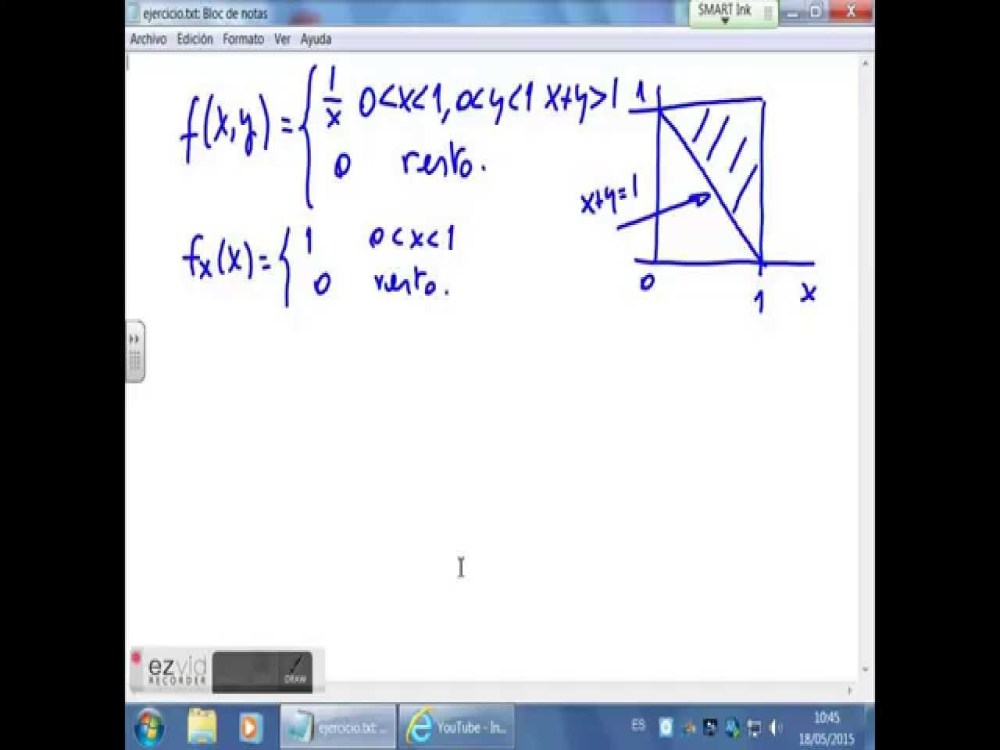 ejercicio.txt: Bloc de notas
SMART Ink
Archivo Edición Formato Ver Ayuda
f(x,y) = { 1/x 0<x<1, 0<y<1 x+y>1
0 resto.
1
x+y=1
0 1 x
fx(x) = { 1 0<x<1
0 resto.
ezvid
RECORDER
DRAW
ejercicio.txt: ...
YouTube - In...
ES
10:45
18/05/2015